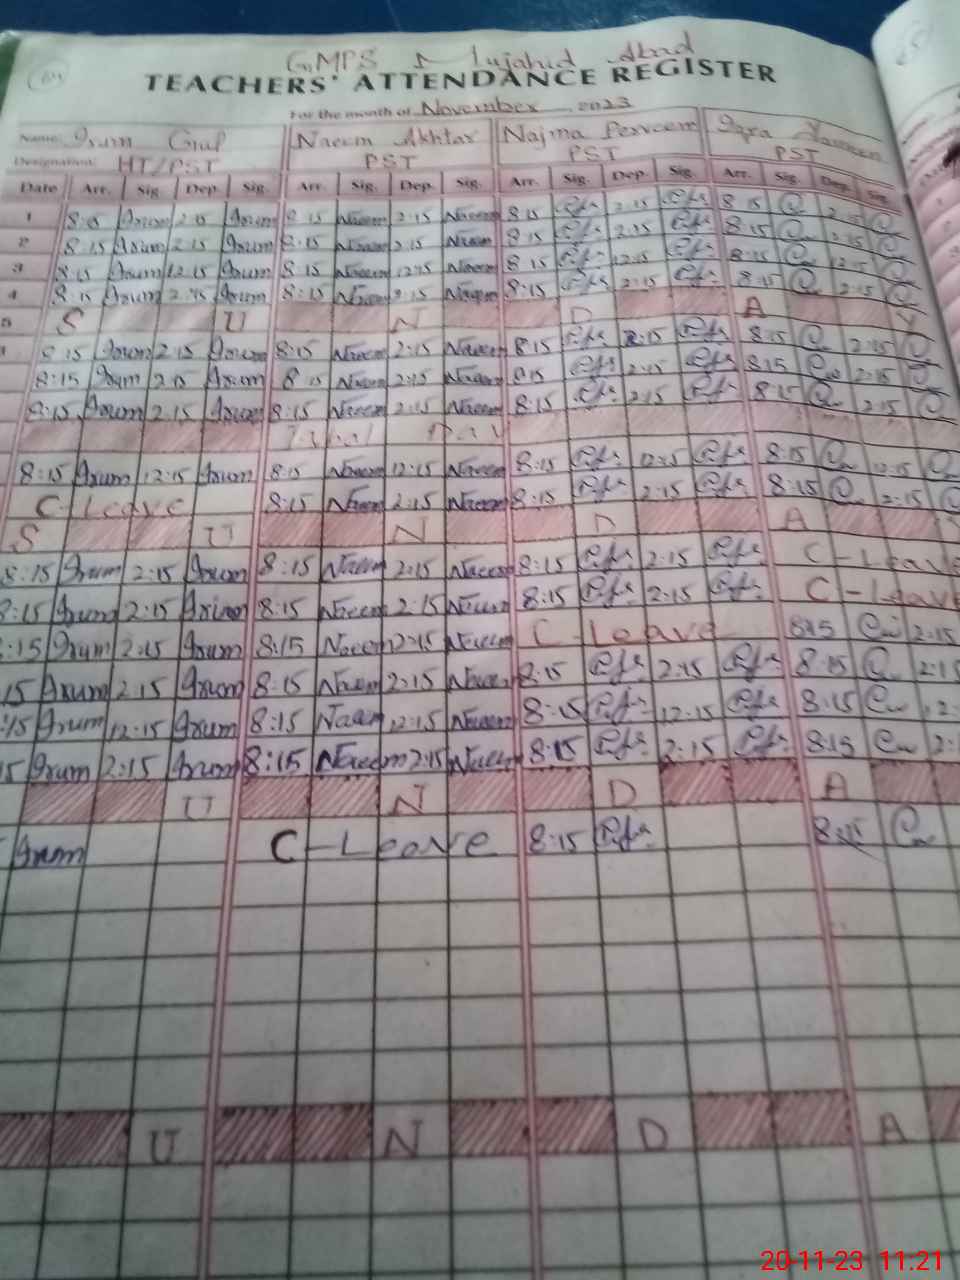 GMPS Mujahid Abad
TEACHERS' ATTENDANCE REGISTER
For the month of November 2023
Name: Irum Gul Naeem Akhtar Najma Perveen Iqra
Designation: HT/PST PST PST PST
Date Arr. Sig. Dep. Sig. Arr. Sig. Dep. Sig. Arr. Sig. Dep. Sig. Arr. Sig. Dep. Sig.
1 8:15 Irum 2:15 Irum 8:15 Naeem 2:15 Naeem 8:15 2:15 8:15 2:15
2 8:15 Irum 2:15 Irum 8:15 Naeem 2:15 Naeem 8:15 2:15 8:15 2:15
3 8:15 Irum 12:15 Irum 8:15 Naeem 12:15 Naeem 8:15 12:15 8:15 12:15
4 8:15 Irum 2:15 Irum 8:15 Naeem 2:15 Naeem 8:15 2:15 8:15 2:15
5 S U N D A Y
8:15 Irum 2:15 Irum 8:15 Naeem 2:15 Naeem 8:15 2:15 8:15 2:15
8:15 Irum 2:15 Irum 8:15 Naeem 2:15 Naeem 8:15 2:15 8:15 2:15
8:15 Irum 2:15 Irum 8:15 Naeem 2:15 Naeem 8:15 2:15 8:15 2:15
Iqbal Day
8:15 Irum 12:15 Irum 8:15 Naeem 12:15 Naeem 8:15 12:15 8:15 12:15
C-Leave 8:15 Naeem 2:15 Naeem 8:15 2:15 8:15 2:15
S U N D A Y
8:15 Irum 2:15 Irum 8:15 Naeem 2:15 Naeem 8:15 2:15 C-Leave
8:15 Irum 2:15 Irum 8:15 Naeem 2:15 Naeem 8:15 2:15 C-Leave
:15 Irum 2:15 Irum 8:15 Naeem 2:15 Naeem C-Leave 8:15 2:15
15 Irum 2:15 Irum 8:15 Naeem 2:15 Naeem 8:15 2:15 8:15 2:15
:15 Irum 12:15 Irum 8:15 Naeem 12:15 Naeem 8:15 12:15 8:15 12:
5 Irum 2:15 Irum 8:15 Naeem 2:15 Naeem 8:15 2:15 8:15 2:
U N D A
Irum C-Leave 8:15 8:15
U N D A
20-11-23 11:21